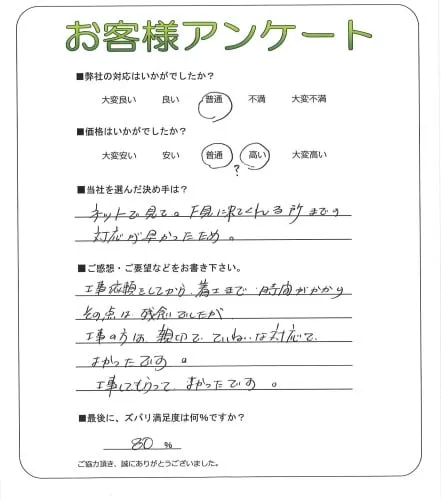 お客様アンケート
■弊社の対応はいかがでしたか？
大変良い 良い 普通 不満 大変不満
■価格はいかがでしたか？
大変安い 安い 普通 ? 高い 大変高い
■当社を選んだ決め手は？
ネットで見て。下見に来てくれる所までの
対応が早かったため。
■ご感想・ご要望などをお書き下さい。
工事依頼をしてから、着工まで、時間がかかり
その点は残念でしたが、
工事の方は親切でていねいな対応で、
よかったです。
工事してもらって、よかったです。
■最後に、ズバリ満足度は何％ですか？
80 %
ご協力頂き、誠にありがとうございました。